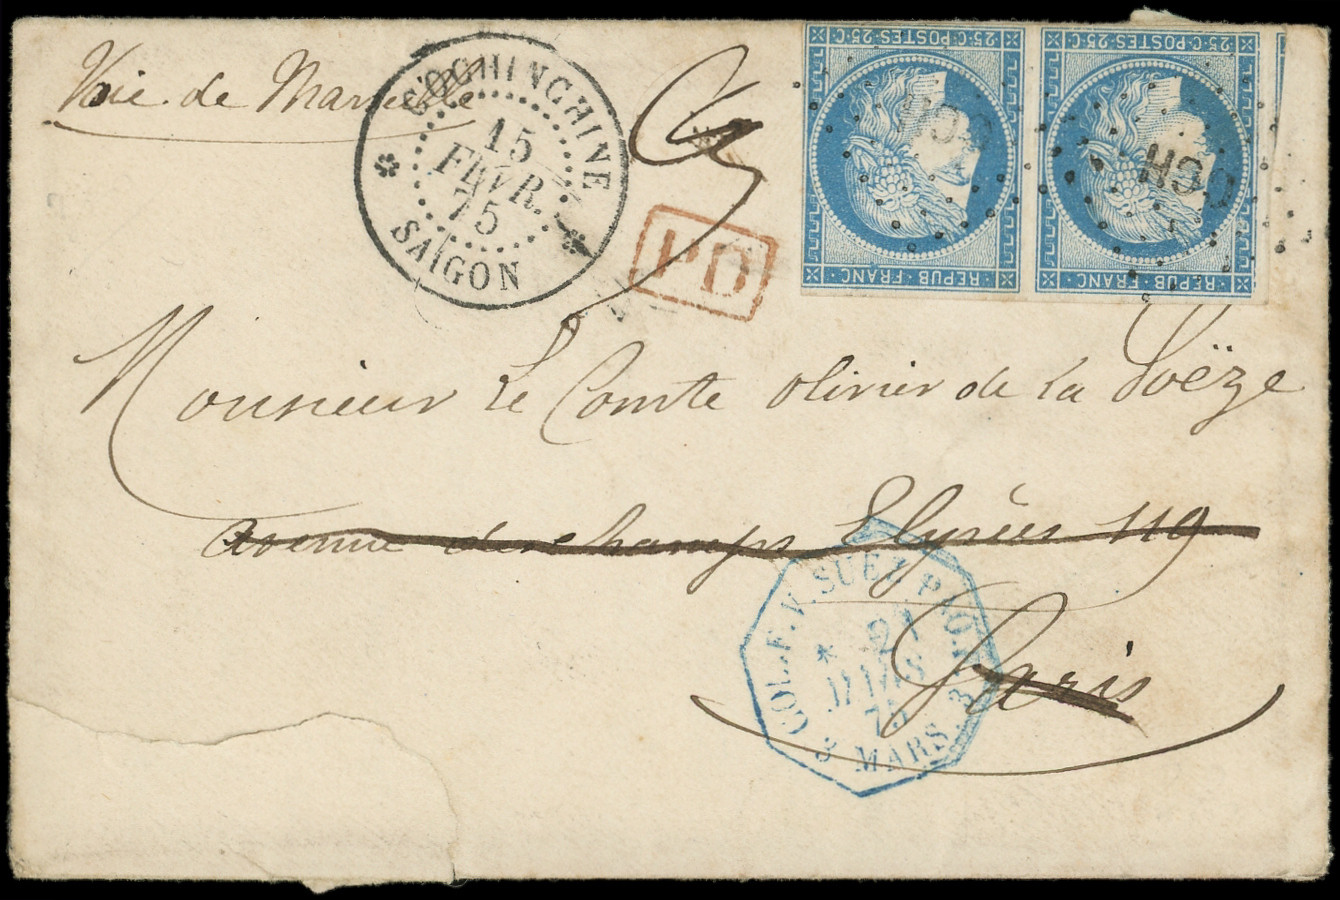 Voie de Marseille
COCHINCHINE
15
FEVR.
75
SAIGON
PD
25·C·POSTES·25·C
REPUB·FRANC
CCH
25·C·POSTES·25·C
REPUB·FRANC
CCH
Monsieur Le Comte Olivier de la Loëze
avenue des champs Elysées 119
Paris
COL.F.V.SUEZ PAQ.
21
MARS
75
3 MARS. 3